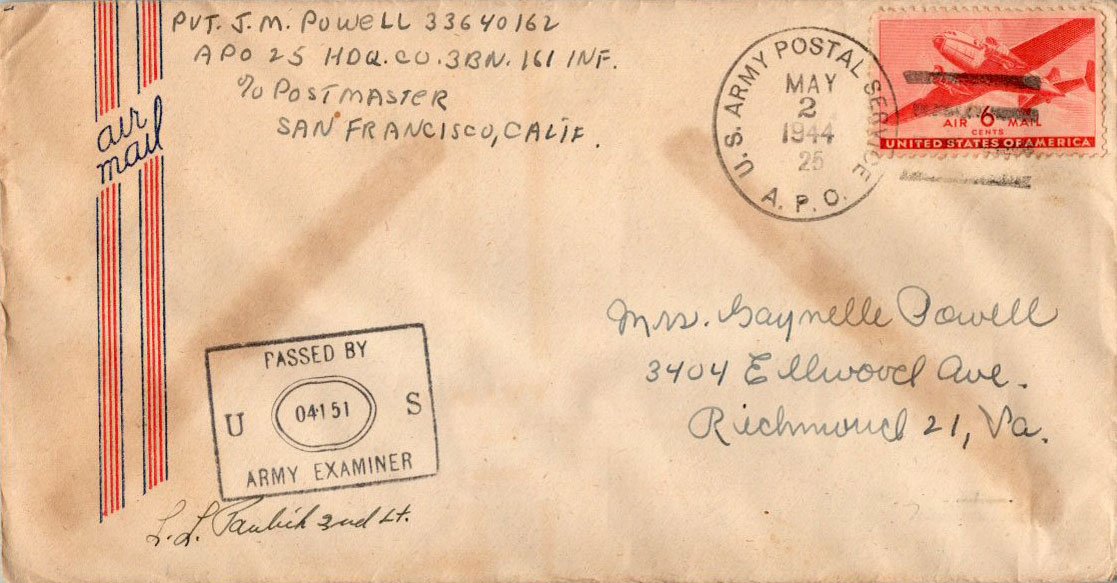 PVT. J. M. POWELL 33640162
APO 25 HDQ. CO. 3BN. 161 INF.
℅ POSTMASTER
SAN FRANCISCO, CALIF.
air
mail
U.S. ARMY POSTAL SERVICE
MAY
2
1944
25
A.P.O.
AIR 6 MAIL
CENTS
UNITED STATES OF AMERICA
Mrs. Gaynelle Powell
3404 Ellwood Ave.
Richmond 21, Va.
PASSED BY
U 04151 S
ARMY EXAMINER
L. L. 2nd Lt.